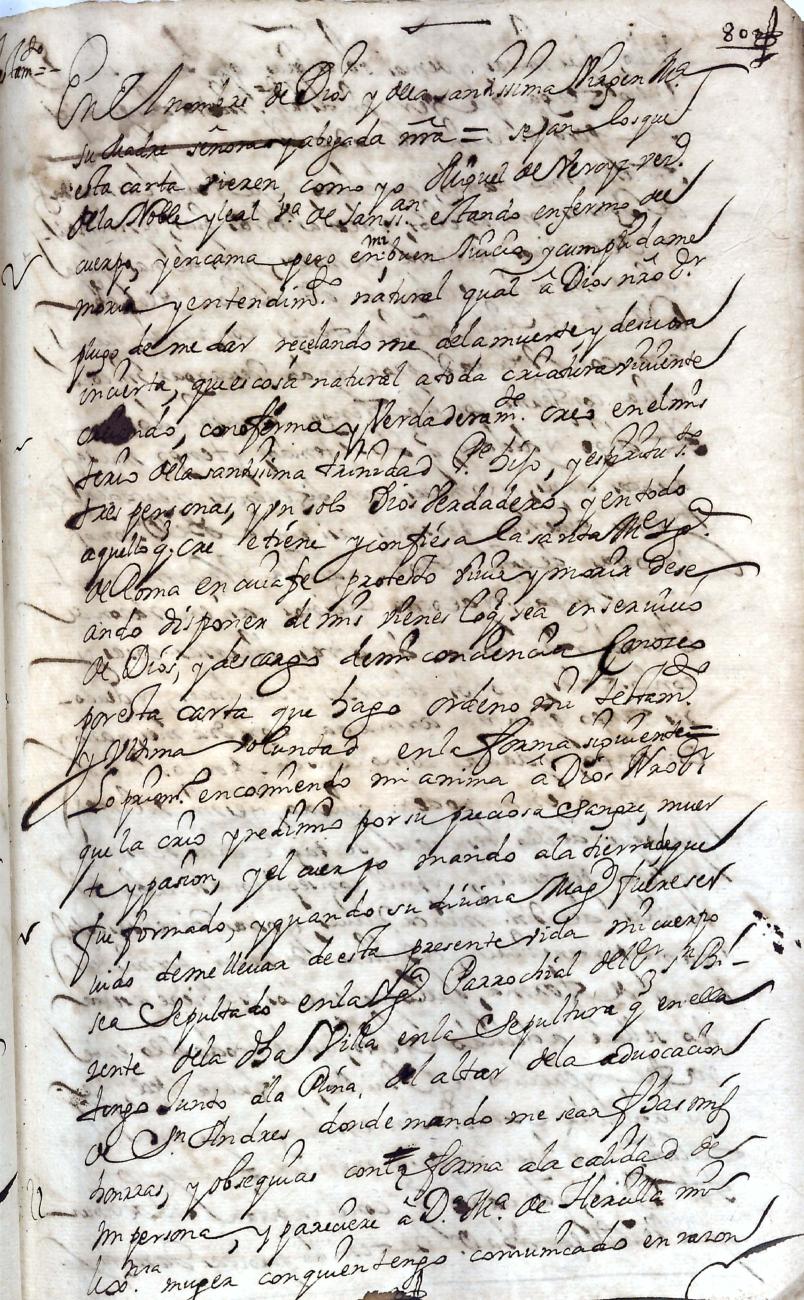 803
En El nombre de Dios y de la santissima Virgen Mª
su Madre señora y abogada nrã = sepan los que
esta carta vieren, como yo Miguel de Veroyz vezº
de la Noble y leal vª de San ssan estando enfermo de
cuerpo, y en cama pero en mi buen Juicio, y cumplida me
moria y entendimtº natural qual â Dios nrõ Sr
plugo de me dar recelando me de la muerte, y de su ora
incierta, que es cosa natural a toda criatura viviente
creiendo, como firme y Verdaderamte creo en el mis
terio de la santissima trinidad Pe hijo, y espiritu sto
tres personas, y un solo Dios Verdadero, y en todo
aquello q cre e tiene y confiesa la santa Me ygª
de Roma en cuia fe protesto vivir y morir dese
ando disponer de mis vienes lo q sea en servicio
de Dios, y descargo de mi conciencia Conozco
por esta carta que hago ordeno mi testamtº
y Ultima voluntad en la forma siguiente =
Lo primº encomiendo mi anima â Dios Nrõ Sr
que la crio y redimio por su preciosa sangre, muer
te y pasion, y el cuerpo mando a la tierra de que
fue formado, y quando su divina Magd fuere ser
vido de me llevar de esta presente vida mi cuerpo
sea sepultado en la Ygª Parrochial del Sr Sn Bi-
zente de la dha Villa en la sepultura q en ella
tengo Junto a la Pina del altar de la advocacion
de Sn Andres donde mando me sean fhas mis
honrras, y obsequias conforma a la calidad de
mi persona, y pareciere â Dª Mª de Herculla mi
lixma muger con quien tengo comunicado en razon